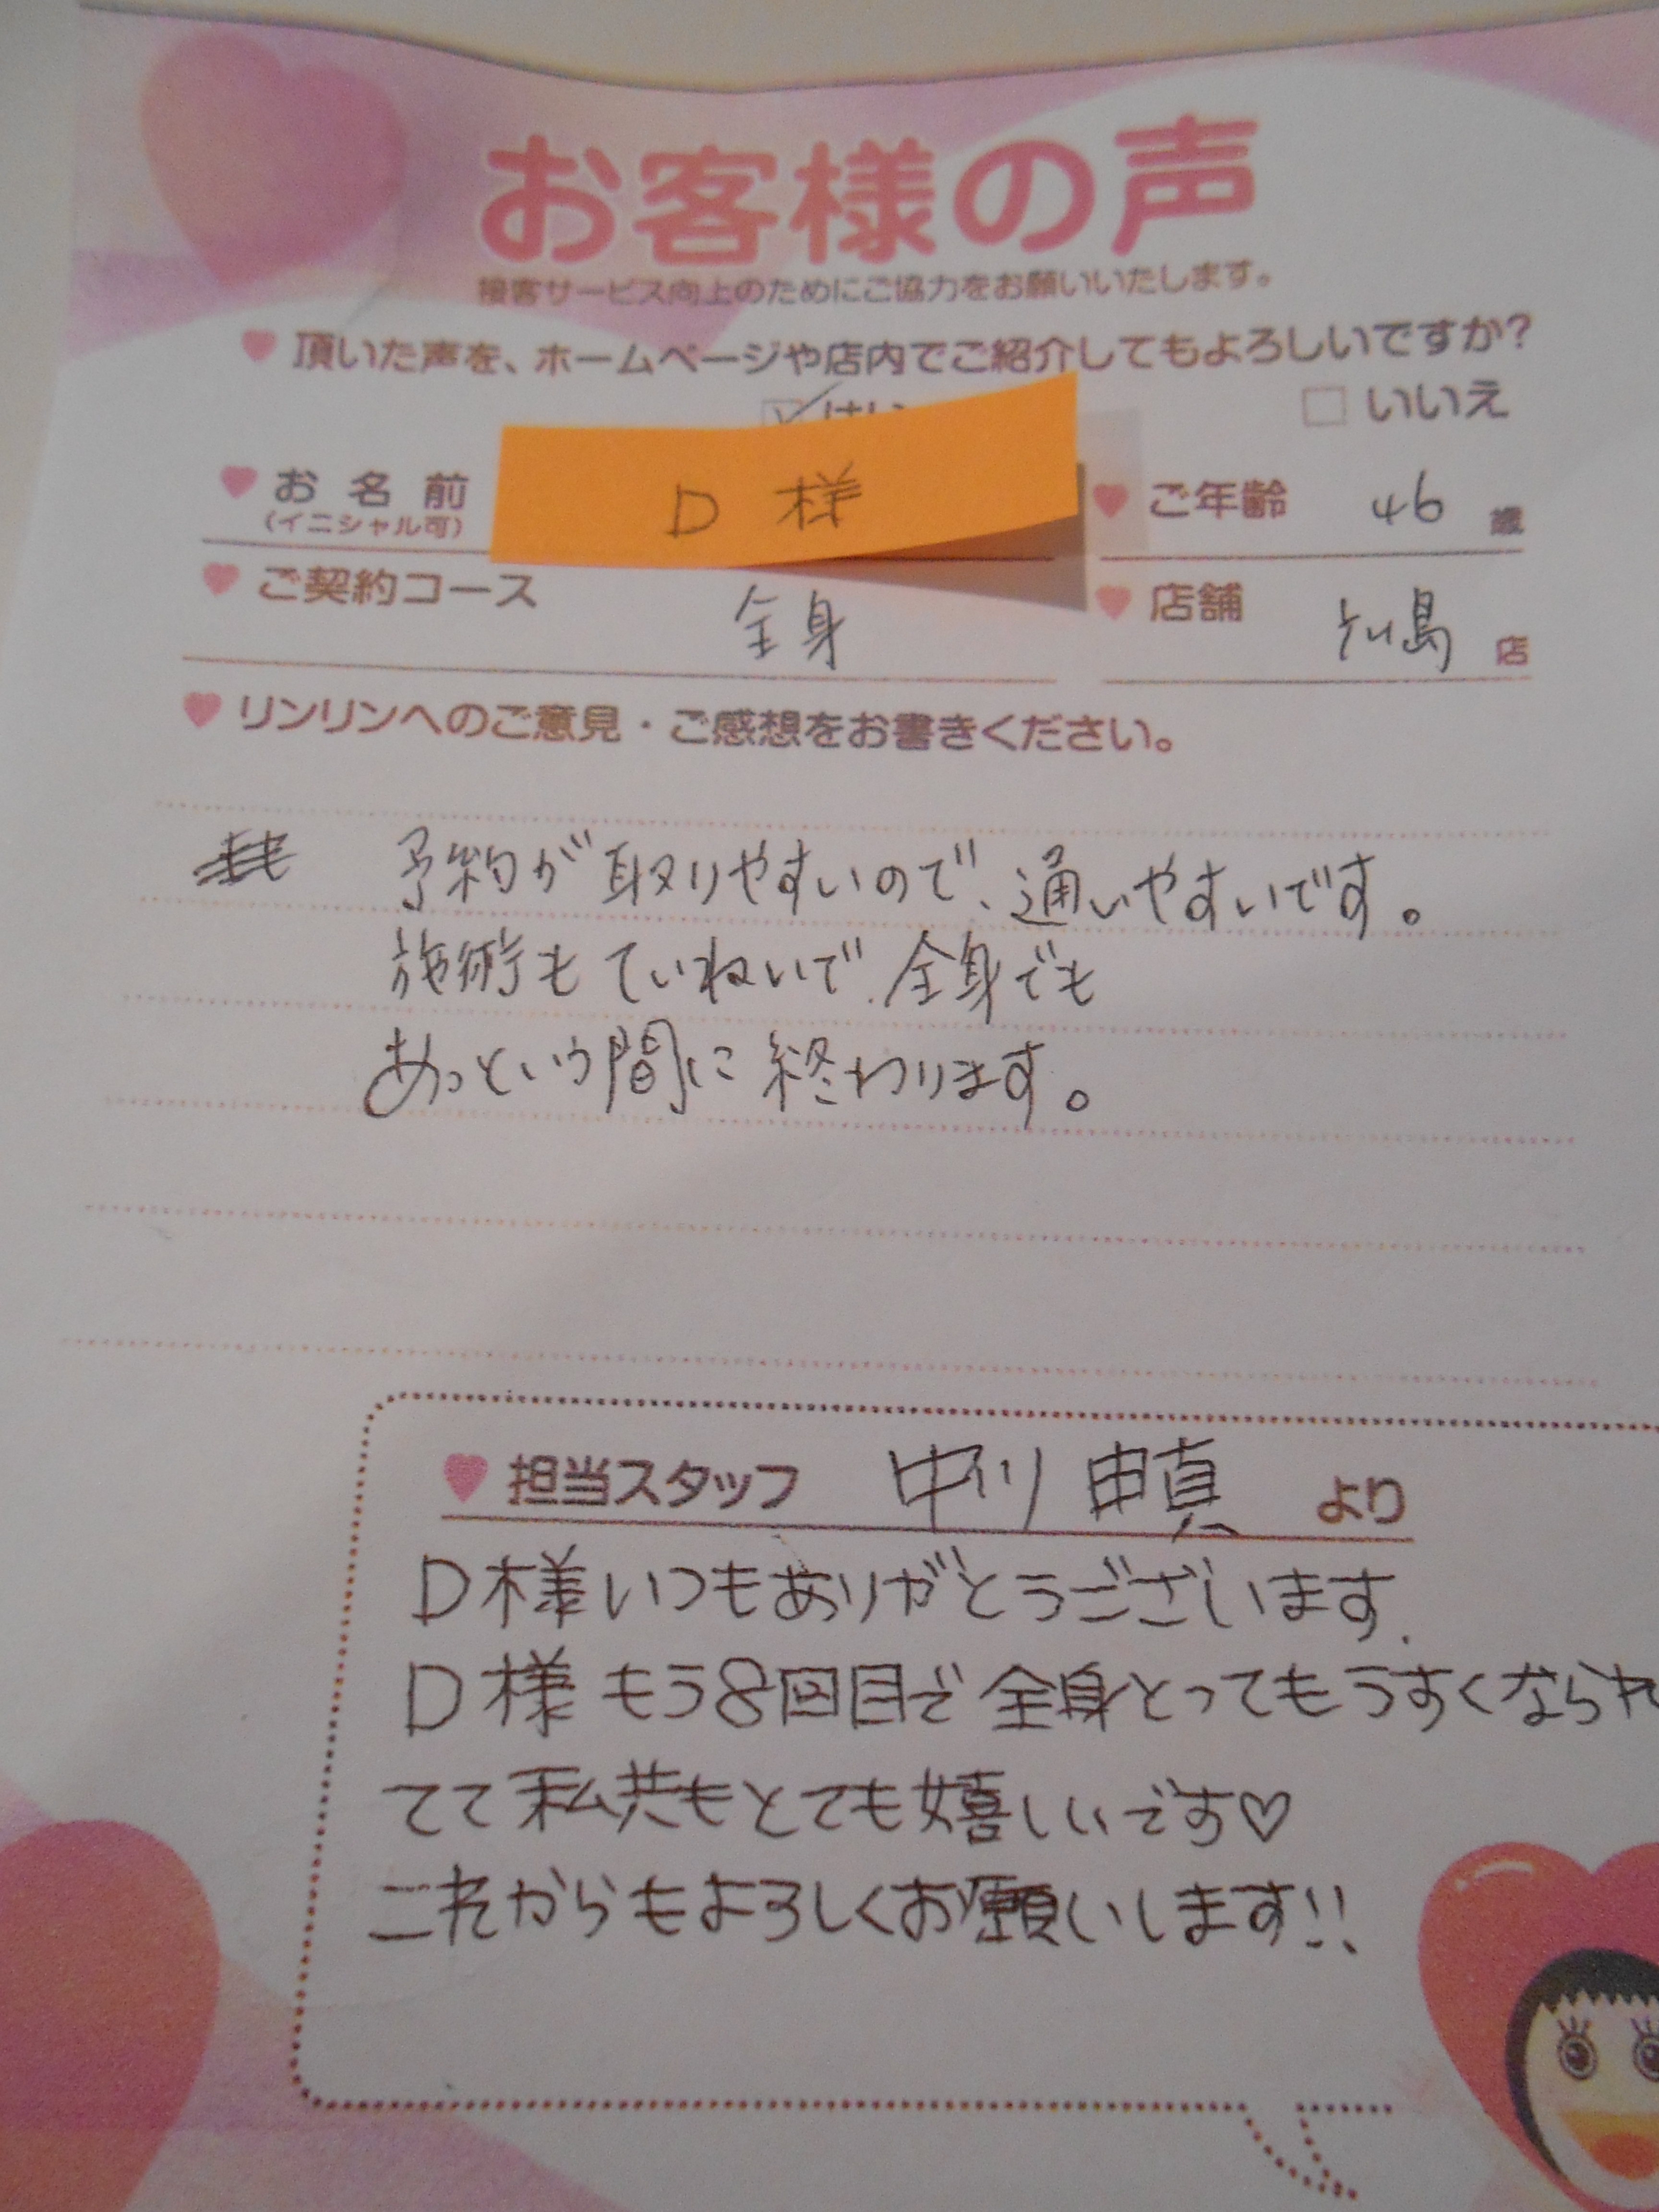 お客様の声
接客サービス向上のためにご協力をお願いいたします。
頂いた声を、ホームページや店内でご紹介してもよろしいですか?
はい いいえ
お名前 D 様 ご年齢 46 歳
(イニシャル可)
ご契約コース 全身 店舗 島 店
リンリンへのご意見・ご感想をお書きください。
予約が取りやすいので、通いやすいです。
施術もていねいで、全身でも
あっという間に終わります。
担当スタッフ 中川 真 より
D様いつもありがとうございます.
D様 もう8回目で全身とってもうすくなられ
てて私共もとても嬉しいです♡
これからもよろしくお願いします!!